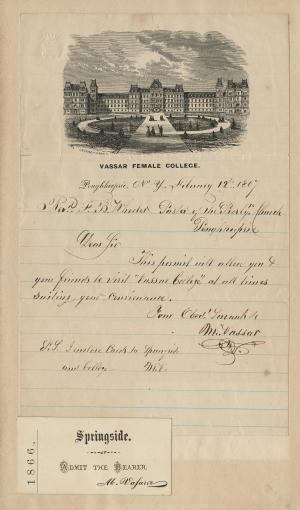 VASSAR FEMALE COLLEGE.
Poughkeepsie, N. Y., February 12th 1867
Revd F. B. Wheeler Pastor of the Presbyn Church
Poughkeepsie
Dear Sir
This permit will allow you &
your friends to visit "Vassar College" at all times
suiting your convenience.
Your Obedt Servant
M. Vassar
P.S. I enclose Cards to Springside
and College M.V.
1866.
Springside.
ADMIT THE BEARER.
M. Vassar